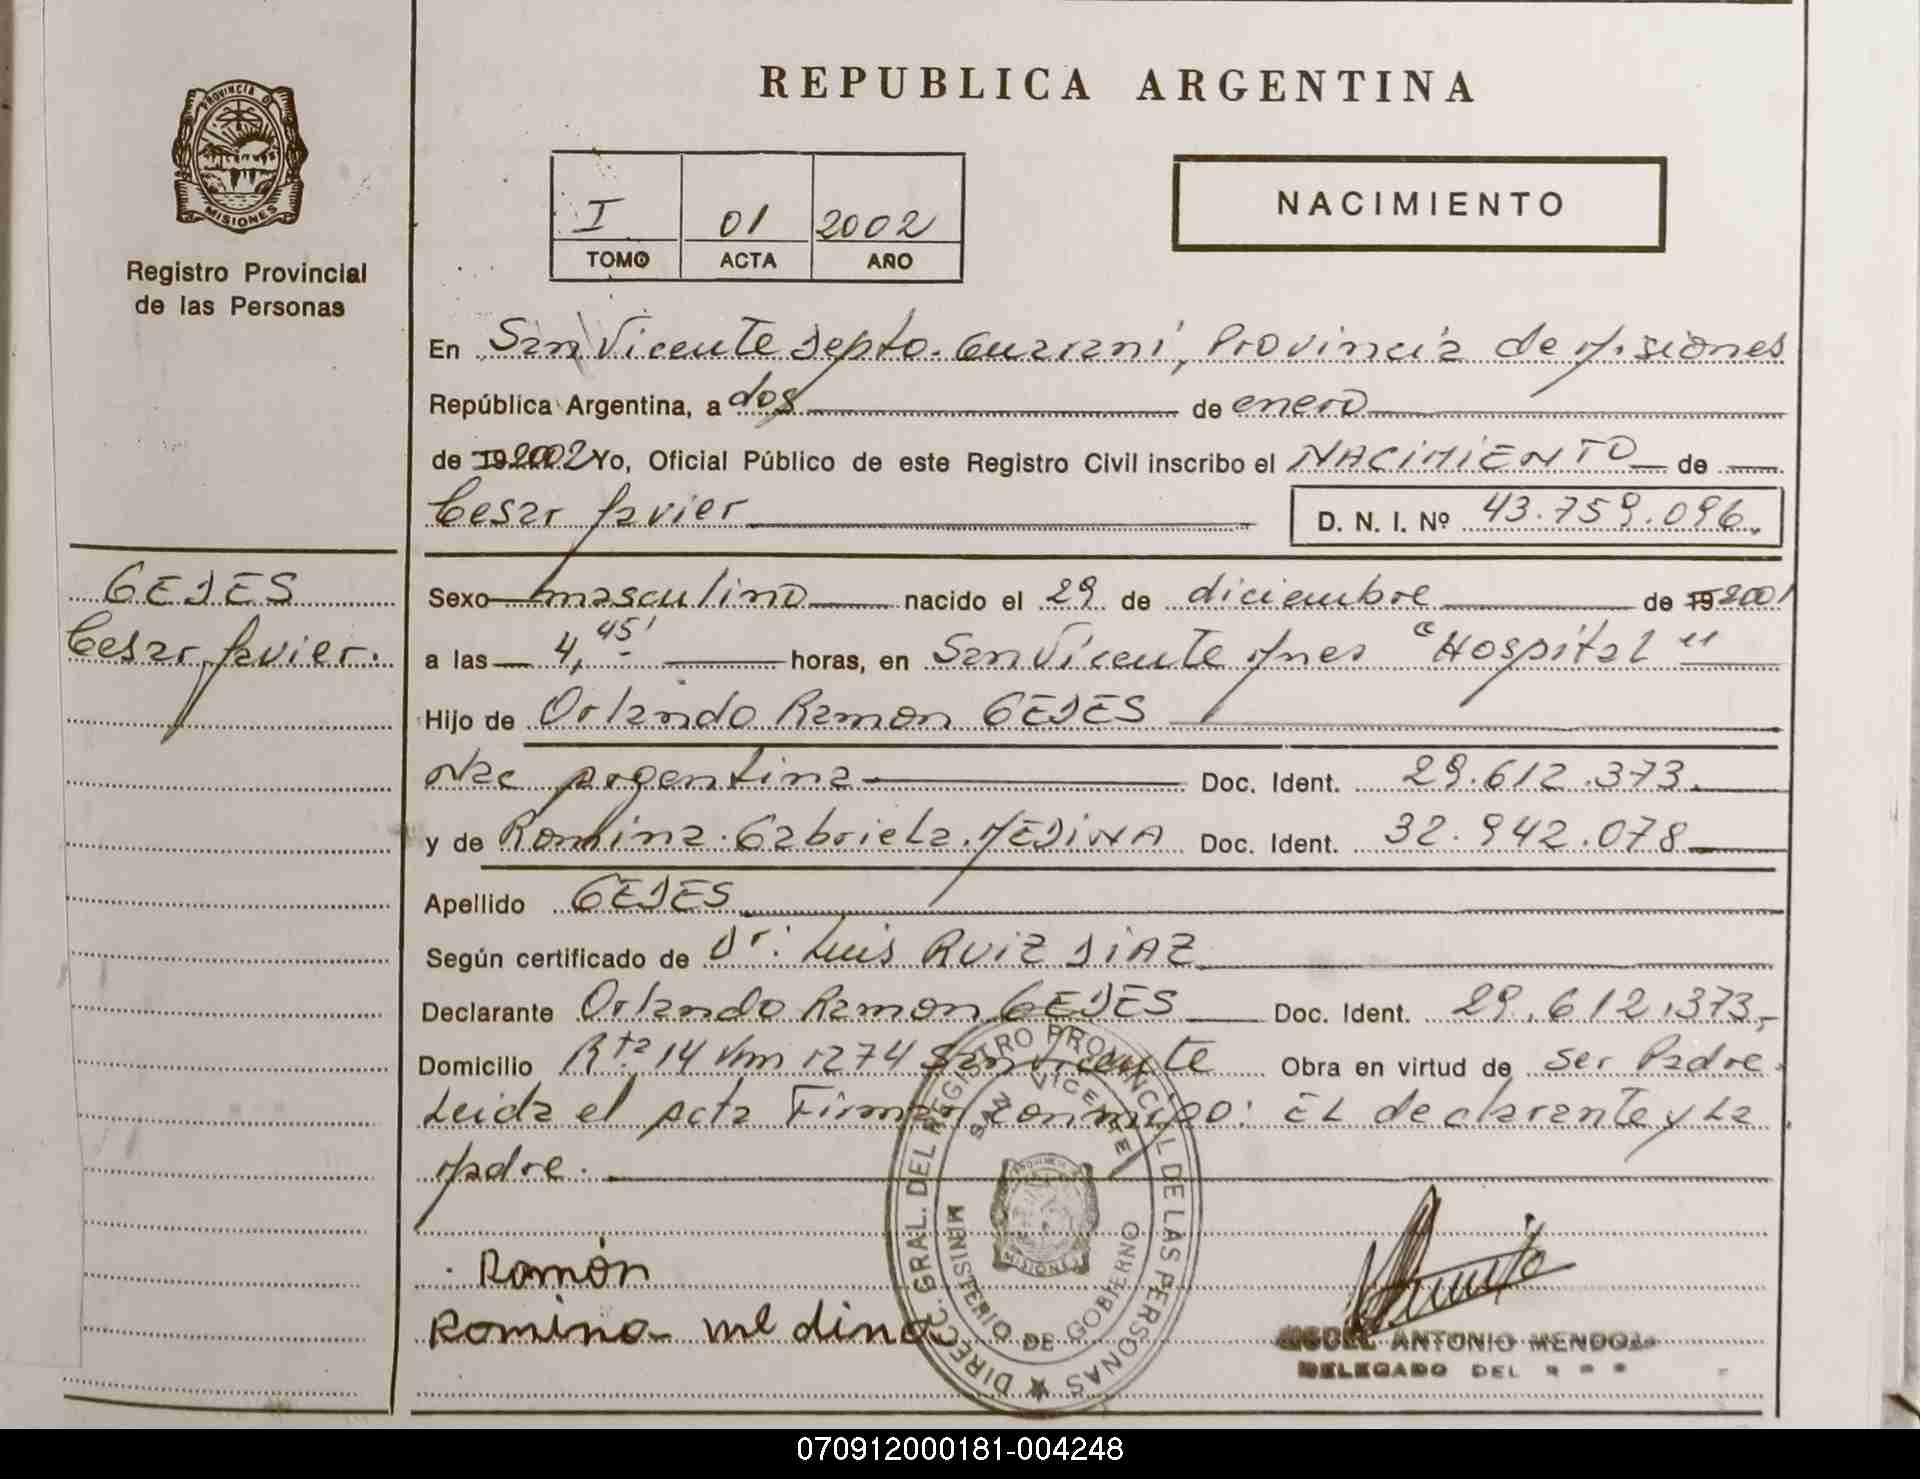 REPUBLICA ARGENTINA
PROVINCIA DE
MISIONES
Registro Provincial
de las Personas
I 01 2002
TOMO ACTA AÑO
NACIMIENTO
En San Vicente Depto. Guarani, Provincia de Misiones
República Argentina, a dos de enero
de 19 2002 Yo, Oficial Público de este Registro Civil inscribo el NACIMIENTO de
Cesar Javier
D. N. I. Nº 43.759.096.
GEDES
Cesar Javier.
Sexo masculino nacido el 29 de diciembre de 19 2001
a las 4,45' horas, en San Vicente Mnes "Hospital"
Hijo de Orlando Ramon GEDES
Nac argentina Doc. Ident. 29.612.373.
y de Romina Gabriela MEDINA Doc. Ident. 32.942.078
Apellido GEDES
Según certificado de Dr: Luis RUIZ DIAZ
Declarante Orlando Ramon GEDES Doc. Ident. 29.612.373,-
Domicilio Rta 14 Km 1274 San Vicente Obra en virtud de ser Padre.
Leida el acta Firman conmigo: EL declarante y La
Madre.
Ramón
Romina medina
DIRECC. GRAL. DEL REGISTRO PROVINCIAL DE LAS PERSONAS
SAN VICENTE
MINISTERIO DE GOBIERNO
MISIONES
ANTONIO MENDOZA
DELEGADO DEL
070912000181-004248